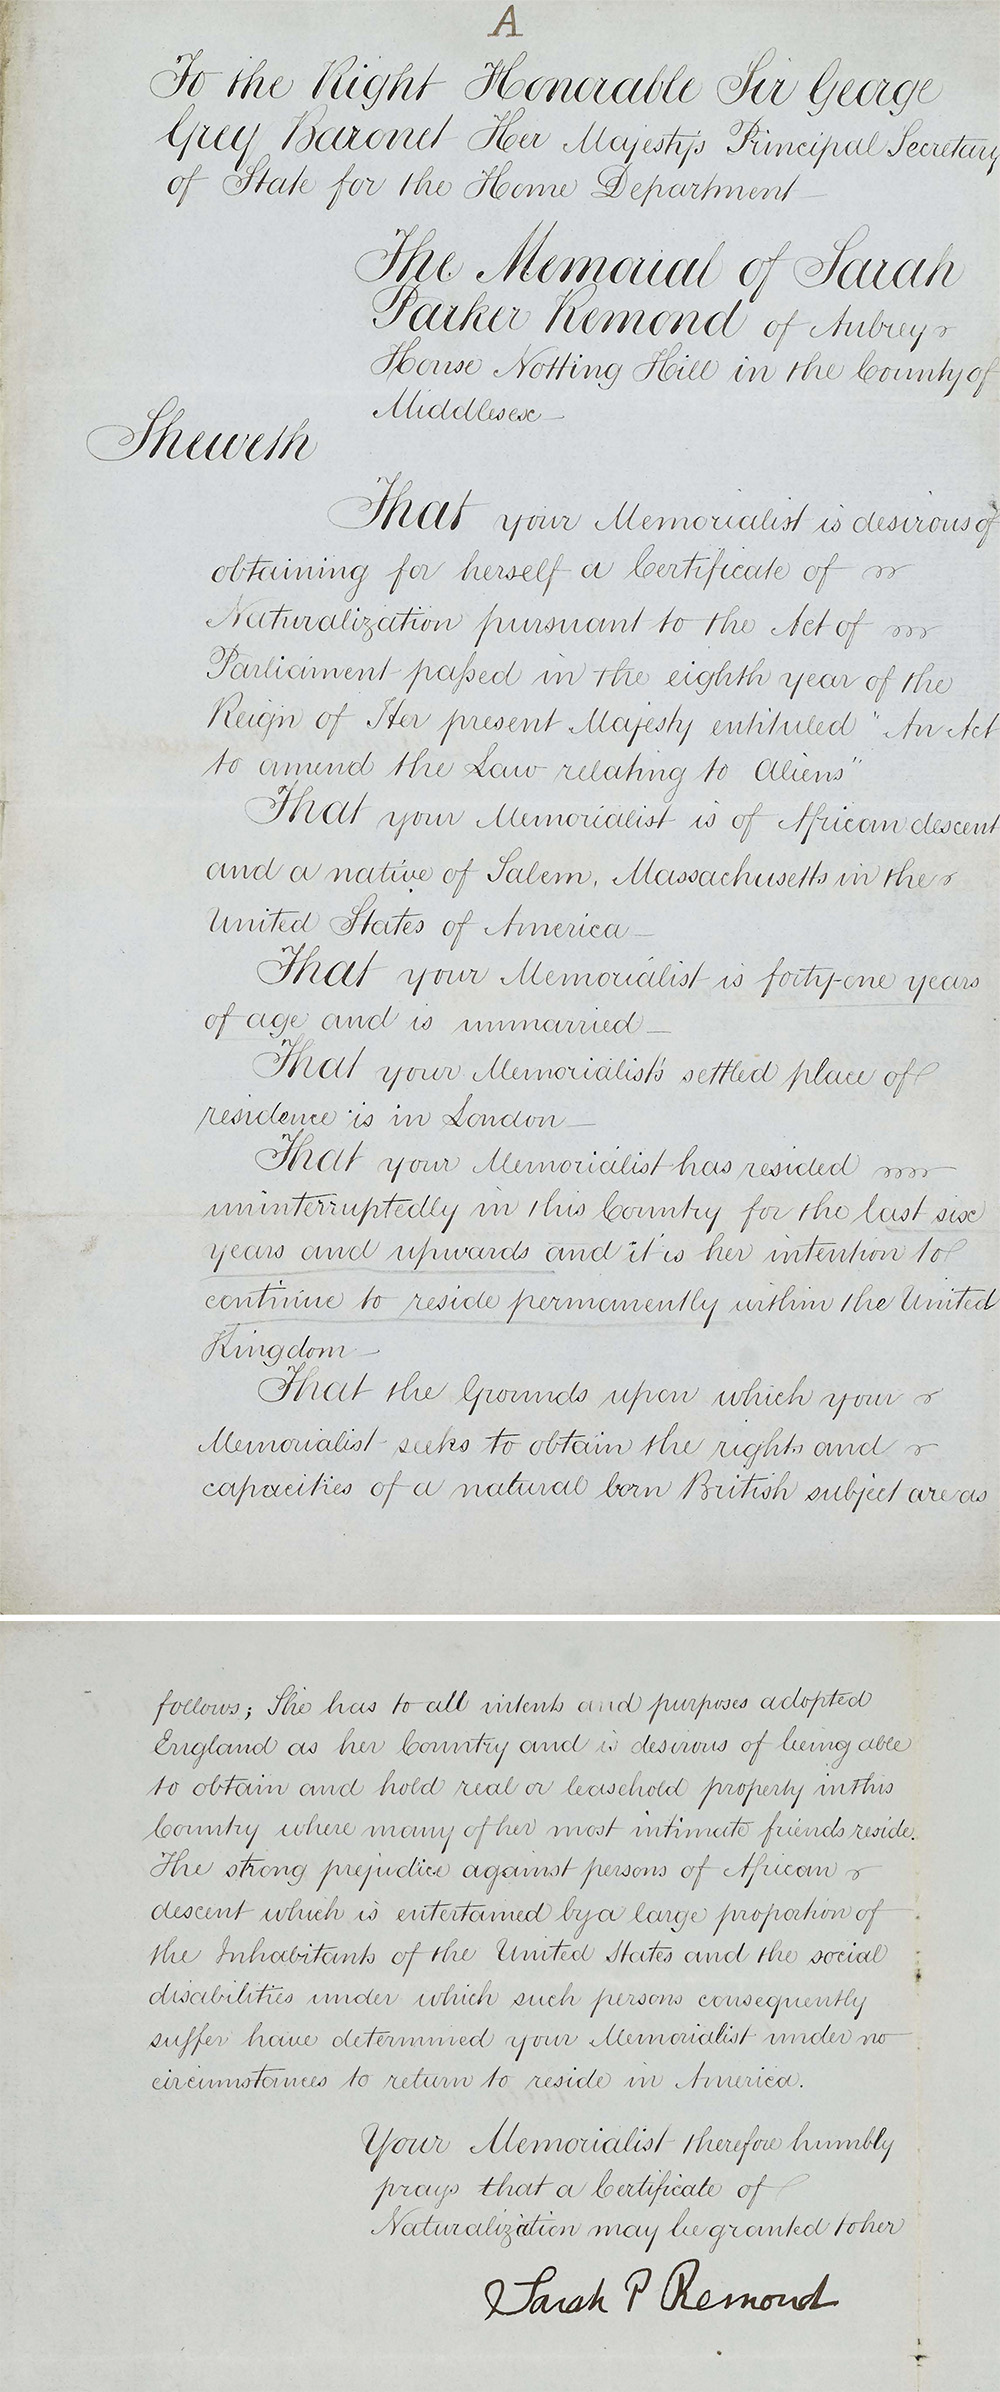 A
To the Right Honorable Sir George
Grey Baronet Her Majesty's Principal Secretary
of State for the Home Department
The Memorial of Sarah
Parker Remond of Aubrey
House Notting Hill in the County of
Middlesex
Sheweth
That your Memorialist is desirous of
obtaining for herself a Certificate of
Naturalization pursuant to the Act of
Parliament paſsed in the eighth year of the
Reign of Her present Majesty entituled "An Act
to amend the Law relating to Aliens"
That your Memorialist is of African descent
and a native of Salem, Massachusetts in the
United States of America
That your Memorialist is forty-one years
of age and is unmarried
That your Memorialist's settled place of
residence is in London
That your Memorialist has resided
uninterruptedly in this Country for the last six
years and upwards and it is her intention to
continue to reside permanently within the United
Kingdom
That the Grounds upon which your
Memorialist seeks to obtain the rights and
capacities of a natural born British subject are as
follows; She has to all intents and purposes adopted
England as her Country and is desirous of being able
to obtain and hold real or leasehold property in this
Country where many of her most intimate friends reside.
The strong prejudice against persons of African
descent which is entertained by a large proportion of
the Inhabitants of the United States and the social
disabilities under which such persons consequently
suffer have determined your Memorialist under no
circumstances to return to reside in America.
Your Memorialist therefore humbly
prays that a Certificate of
Naturalization may be granted to her
Sarah P Remond